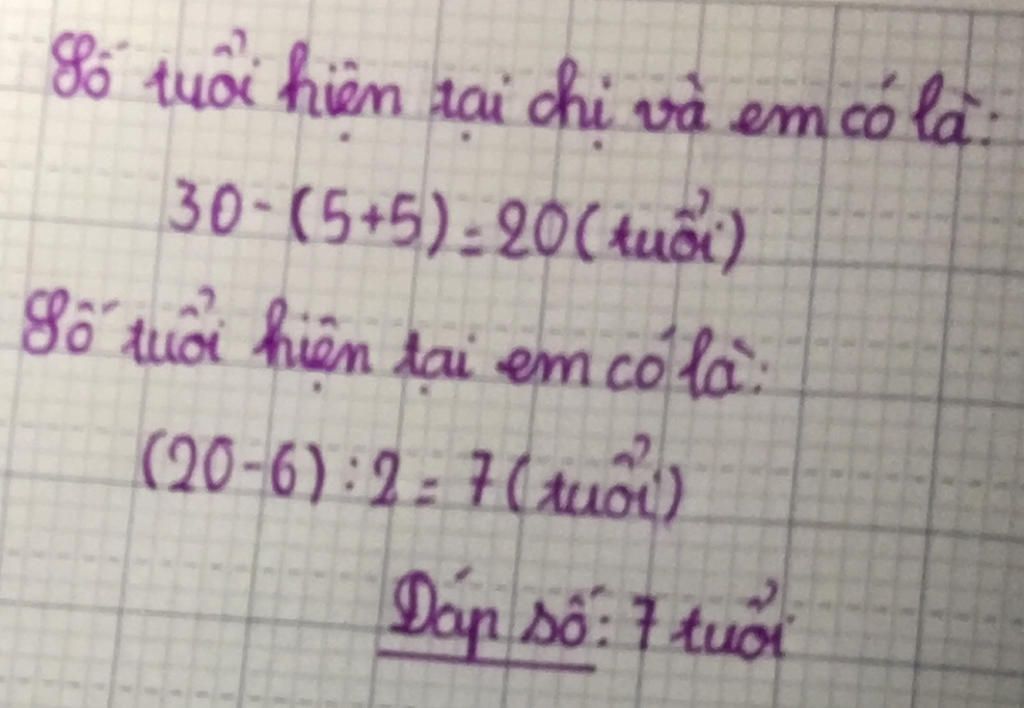 Số tuổi hiện tại chị và em có là:
30-(5+5)=20(tuổi)
Số tuổi hiện tại em có là:
(20-6):2=7(tuổi)
Đáp số: 7 tuổi